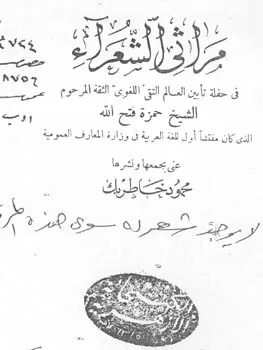 مراثي الشعراء
في حفلة تأبين العالم التقي اللغوي الثقة المرحوم
الشيخ حمزة فتح الله
الذي كان مفتشاً أول للغة العربية في وزارة المعارف العمومية
عنى بجمعها ونشرها
محمود خاطر بك
لا يوجد شعر له سوى هذه